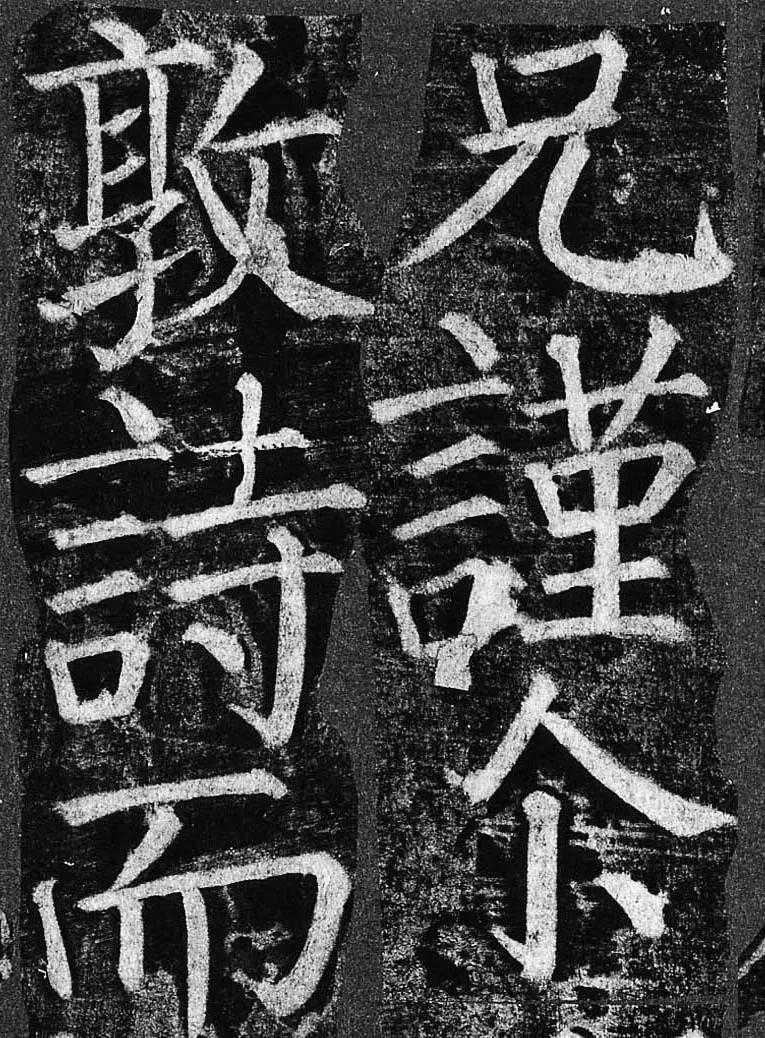 兄謹尒
敦詩而